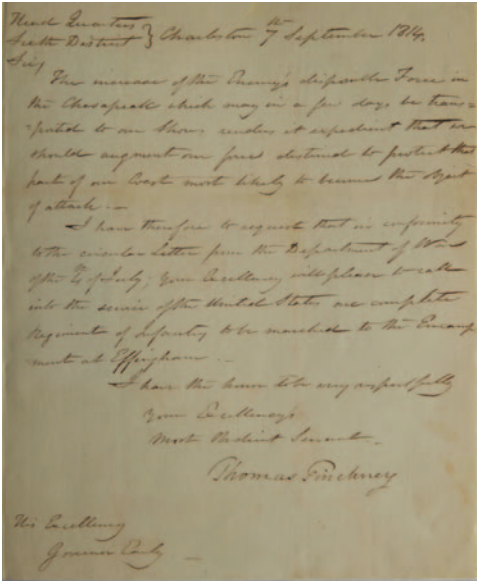 Head Quarters
Sixth District } Charleston 7th September 1814.
Sir,
The increase of the Enemy's disposable Force in
the Chesapeak which may in a few days be trans=
=ported to our Shores renders it expedient that we
should augment our force destined to protect that
part of our Coast most likely to become the object
of attack.—
I have therefore to request that in conformity
to the circular Letter from the Department of War
of the 4th of July; your Excellency will please to call
into the service of the United States one complete
Regiment of infantry to be marched to the Encamp
=ment at Effingham.—
I have the honor to be very respectfully
Your Excellency's
Most Obedient Servant.
Thomas Pinckney
His Excellency
Governor Early